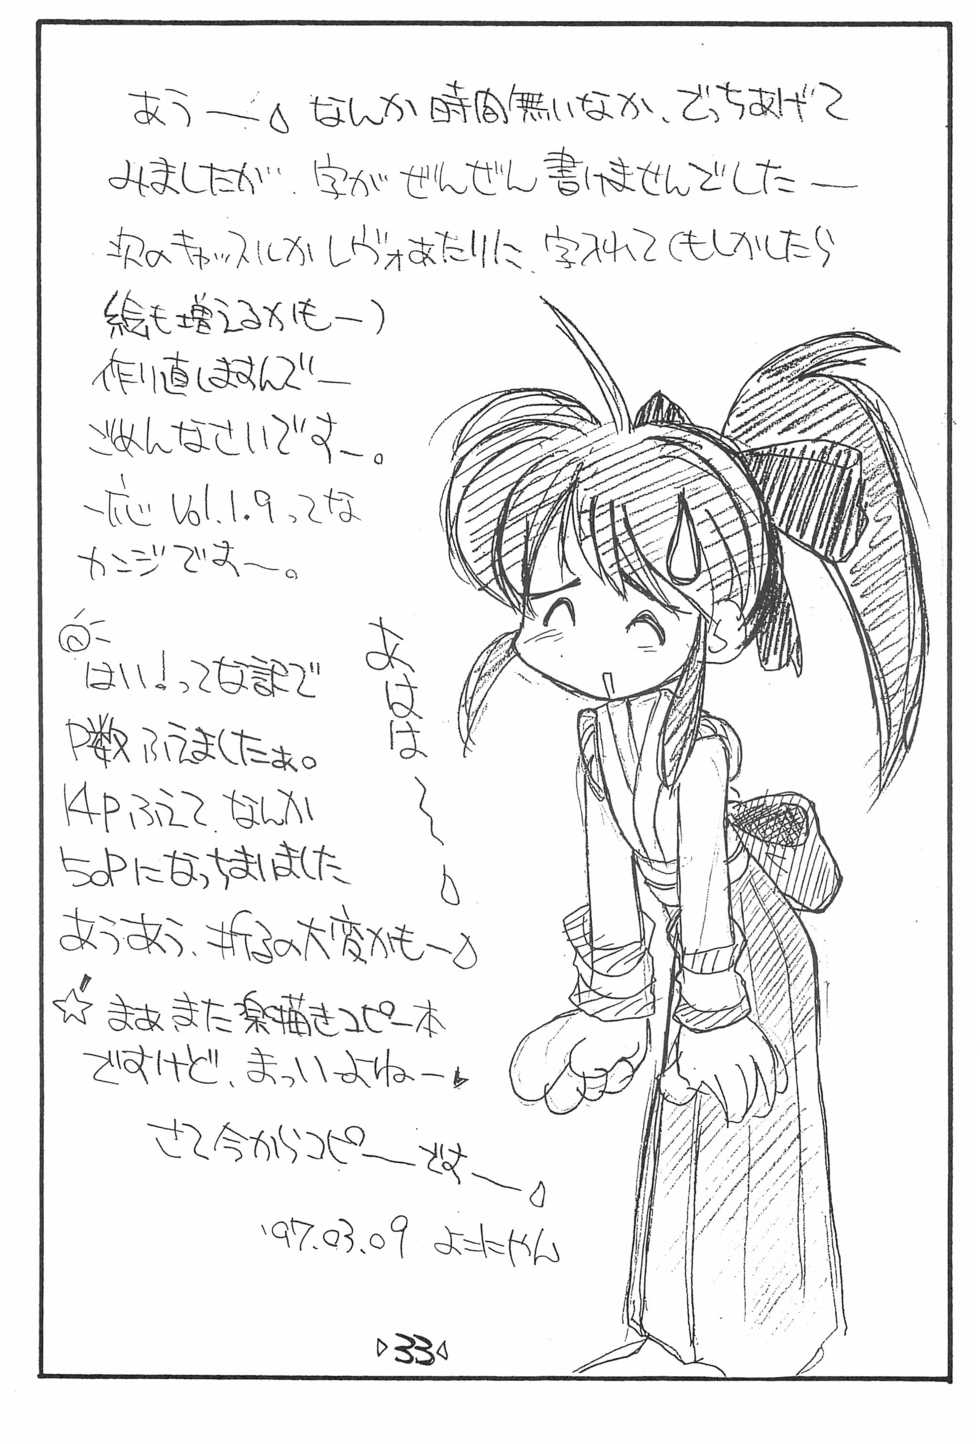 あうー。なんか時間無いなか、でっちあげて
みましたが、字がぜんぜん書けませんでしたー
次のキャッスルかレヴォあたりに、字入れて(もしかしたら
絵も増えるかもー)
作り直しますんでー
ごめんなさいですー。
一応 Vol.1.9 ってな
カンジですー。
はい!って訳で
P数ふえましたぁ。
14Pふえて、なんか
50Pになっちまいました
あうあう、折るの大変かもー
☆まぁまた楽描きコピー本
ですけど、まっいいよねー
さて今からコピーですー。
'97.03.09 よこにゃん
あはは〜
33